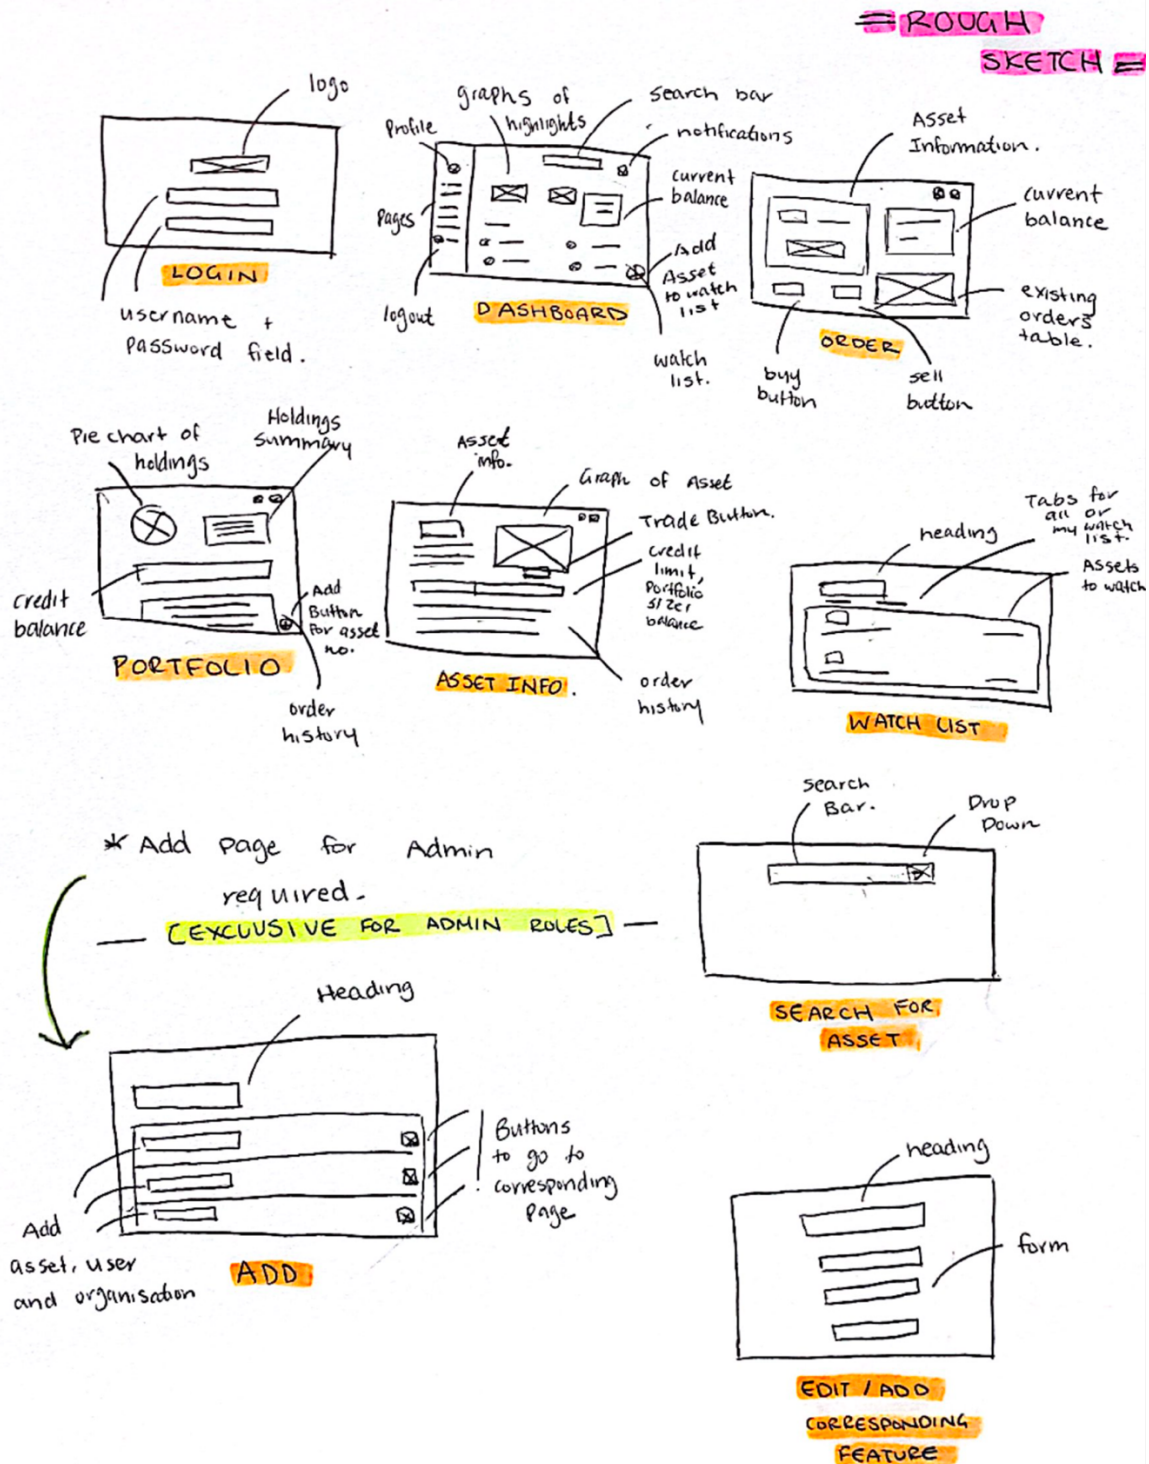 = ROUGH
SKETCH =
logo
LOGIN
username +
password field.
Profile
graphs of
highlights
search bar
notifications
current
balance
Pages
Add
Asset
to watch
list
logout
DASHBOARD
watch
list.
Asset
Information.
current
balance
existing
orders
table.
ORDER
buy
button
sell
button
Pie chart of
holdings
Holdings
summary
Credit
balance
Add
Button
for asset
no.
PORTFOLIO
order
history
Asset
info.
Graph of Asset
Trade Button.
Credit
limit,
Portfolio
size,
balance
ASSET INFO.
order
history
heading
Tabs for
all or
my watch
list.
Assets
to watch
WATCH LIST
* Add page for Admin
required.
— [EXCLUSIVE FOR ADMIN ROLES] —
search
Bar.
Drop
Down
SEARCH FOR
ASSET
Heading
Buttons
to go to
corresponding
page
Add
asset, user
and organisation
ADD
heading
form
EDIT / ADD
CORRESPONDING
FEATURE